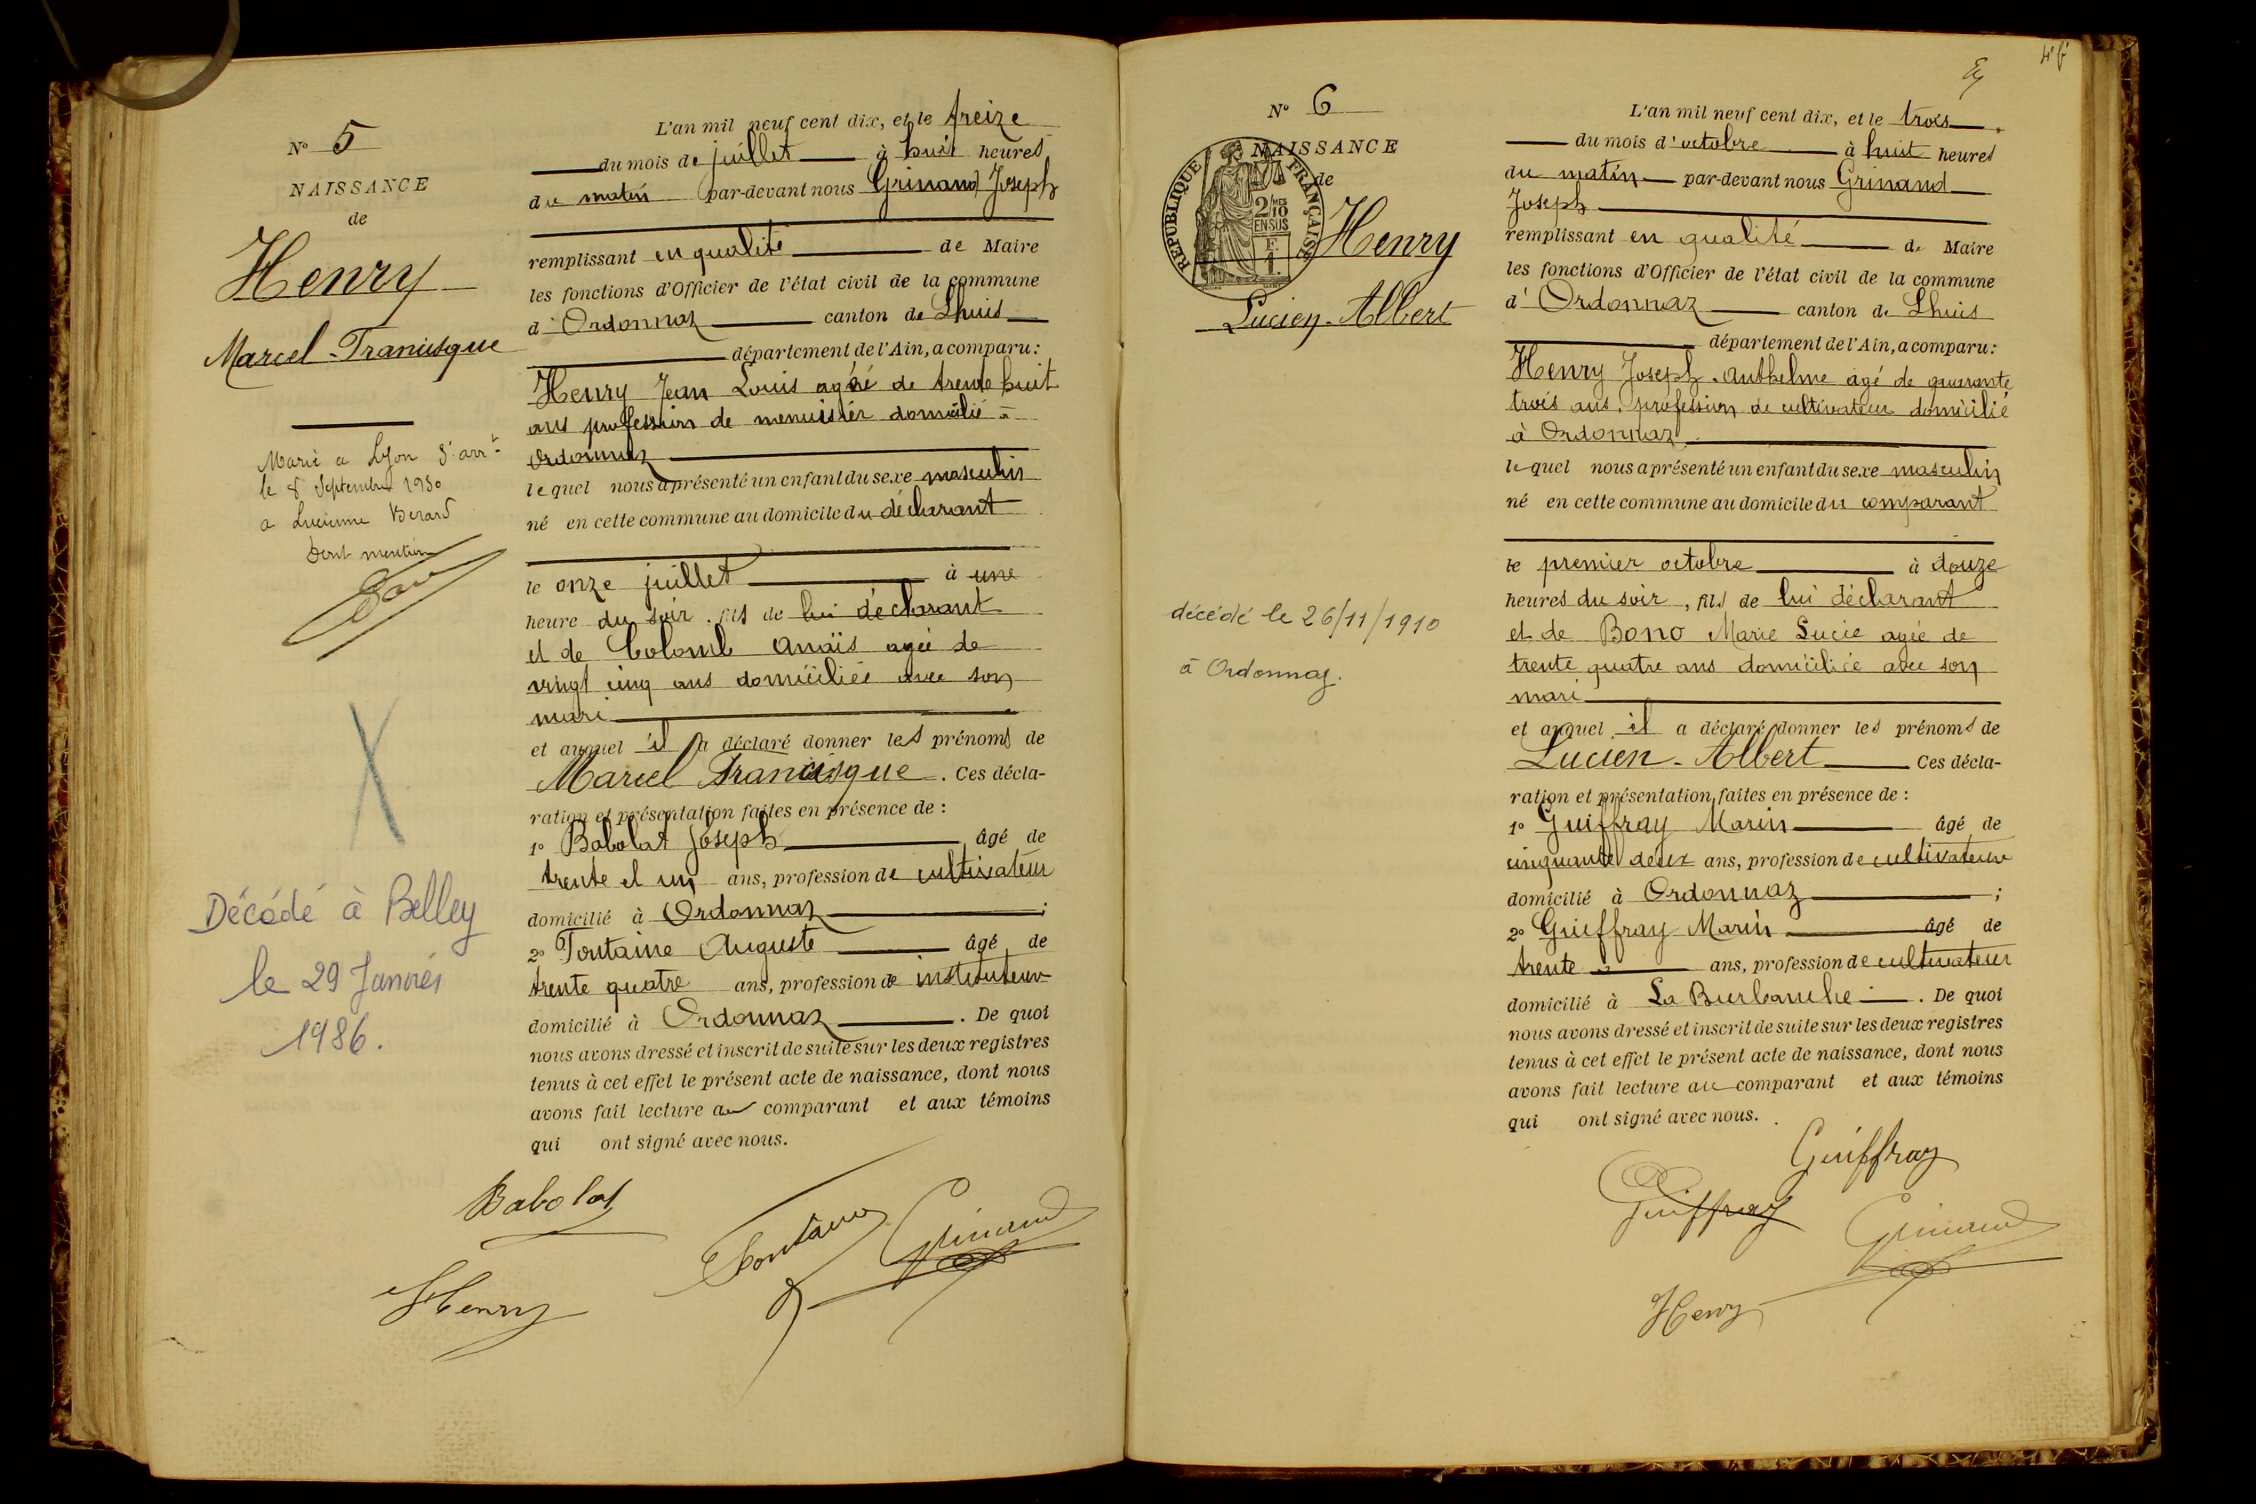 N° 5
NAISSANCE
de
Henry
Marcel-Francisque
Marié a Lyon arrt
le 8 Septembre 1930
a Lucienne Berard
Dont mention
Décédé à Belley
le 29 Janvier
1986.
L'an mil neuf cent dix, et le treize
du mois de juillet à huit heures
du matin par-devant nous Grinand Joseph
remplissant en qualité de Maire
les fonctions d'Officier de l'état civil de la commune
d'Ordonnaz canton de Lhuis
département de l'Ain, a comparu:
Henry Jean Louis agé de trente huit
ans profession de menuisier domicilié à
Ordonnaz
lequel nous a présenté un enfant du sexe masculin
né en cette commune au domicile du déclarant
le onze juillet à une
heure du soir, fils de lui déclarant
et de Colomb Anaïs agée de
vingt cinq ans domiciliée avec son
mari
et auquel il a déclaré donner les prénoms de
Marcel Francisque. Ces décla-
ration et présentation faites en présence de:
1° Babolat Joseph âgé de
trente et un ans, profession de cultivateur
domicilié à Ordonnaz;
2° Fontaine Auguste âgé de
trente quatre ans, profession de instituteur
domicilié à Ordonnaz. De quoi
nous avons dressé et inscrit de suite sur les deux registres
tenus à cet effet le présent acte de naissance, dont nous
avons fait lecture au comparant et aux témoins
qui ont signé avec nous.
Babolat
Fontaine Grinand
Henry
N° 6
NAISSANCE
de
RÉPUBLIQUE FRANÇAISE
2/10MES
EN SUS
F.
1.
Henry
Lucien-Albert
décédé le 26/11/1910
à Ordonnaz.
L'an mil neuf cent dix, et le trois
du mois d'octobre à huit heures
du matin par-devant nous Grinand
Joseph
remplissant en qualité de Maire
les fonctions d'Officier de l'état civil de la commune
d'Ordonnaz canton de Lhuis
département de l'Ain, a comparu:
Henry Joseph-Anthelme agé de quarante
trois ans, profession de cultivateur domicilié
à Ordonnaz
lequel nous a présenté un enfant du sexe masculin
né en cette commune au domicile du comparant
le premier octobre à douze
heures du soir, fils de lui déclarant
et de Bono Marie Lucie agée de
trente quatre ans domiciliée avec son
mari
et auquel il a déclaré donner les prénoms de
Lucien-Albert Ces décla-
ration et présentation faites en présence de:
1° Guiffray Marin âgé de
cinquante deux ans, profession de cultivateur
domicilié à Ordonnaz;
2° Guiffray Marin âgé de
trente ans, profession de cultivateur
domicilié à La Burbanche. De quoi
nous avons dressé et inscrit de suite sur les deux registres
tenus à cet effet le présent acte de naissance, dont nous
avons fait lecture au comparant et aux témoins
qui ont signé avec nous.
Guiffray
Guiffray
Grinand
Henry